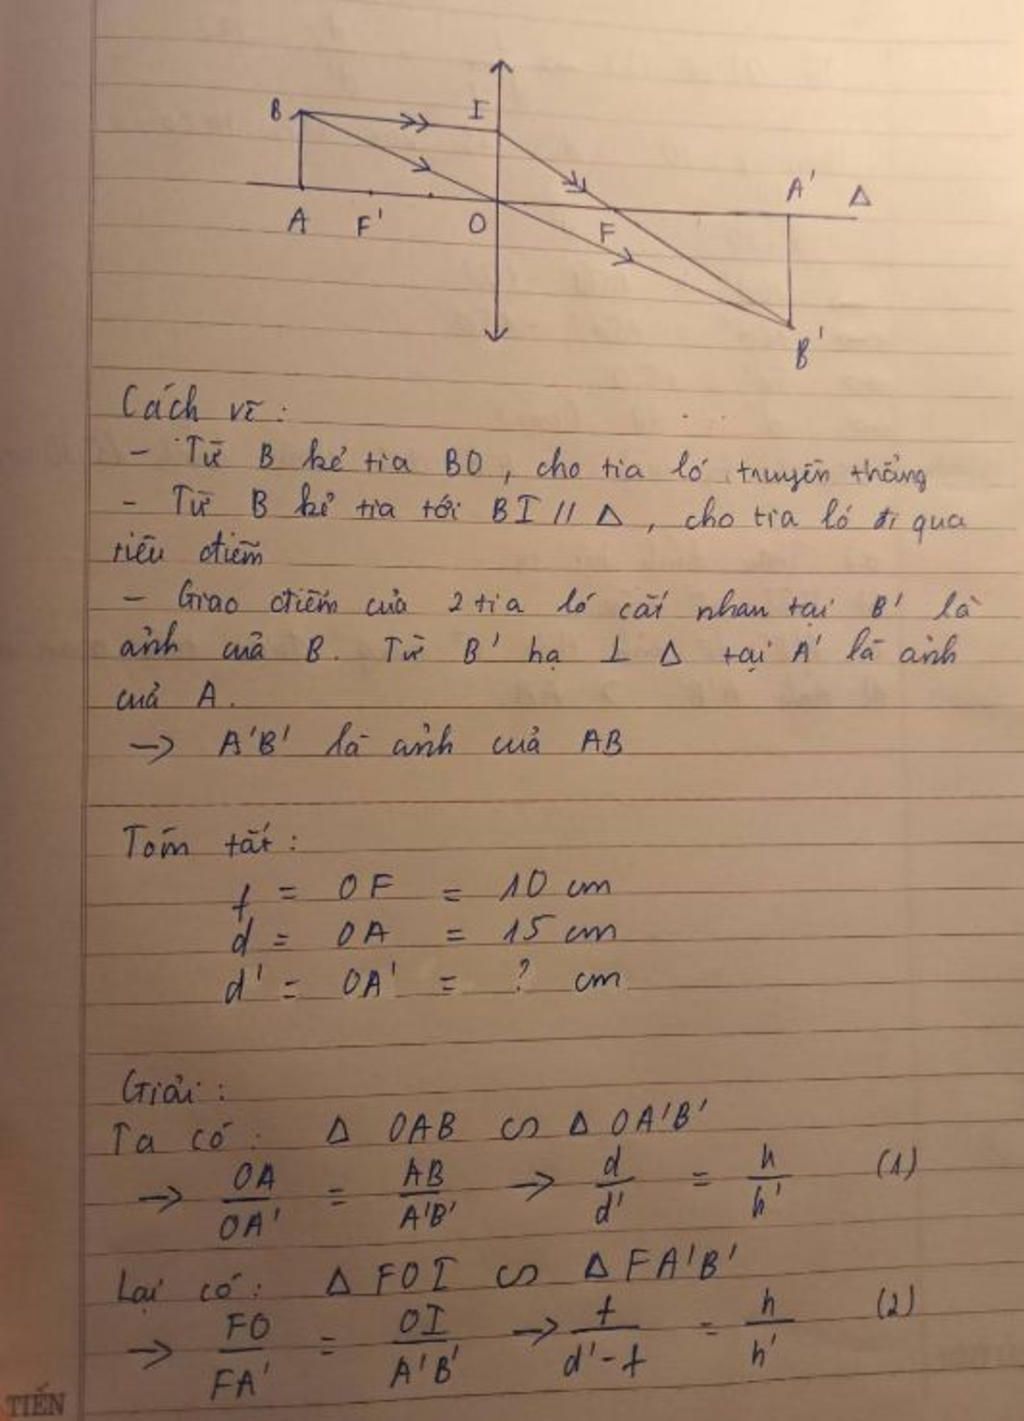 B I
A F' O F A' Δ
B'
Cách vẽ:
- Từ B kẻ tia BO, cho tia ló truyền thẳng
- Từ B kẻ tia tới BI // Δ, cho tia ló đi qua
tiêu điểm
- Giao điểm của 2 tia ló cắt nhau tại B' là
ảnh của B. Từ B' hạ ⊥ Δ tại A' là ảnh
của A.
→ A'B' là ảnh của AB
Tóm tắt:
f = OF = 10 cm
d = OA = 15 cm
d' = OA' = ? cm
Giải:
Ta có: Δ OAB ∽ Δ OA'B'
→ OA/OA' = AB/A'B' → d/d' = h/h' (1)
Lại có: Δ FOI ∽ Δ FA'B'
→ FO/FA' = OI/A'B' → f/d'-f = h/h' (2)
TIẾN